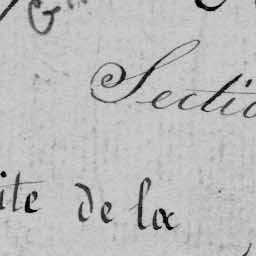 Sectio
ite de la